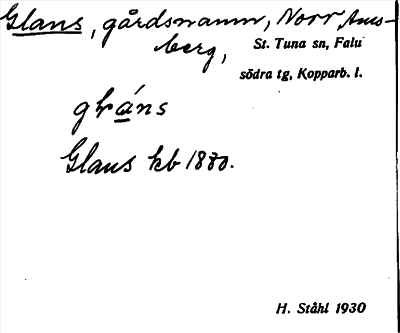 Glans, gårdsnamn, Norr Ams-
berg,
St. Tuna sn, Falu
södra tg, Kopparb. l.
Glans kb 1880.
H. Ståhl 1930